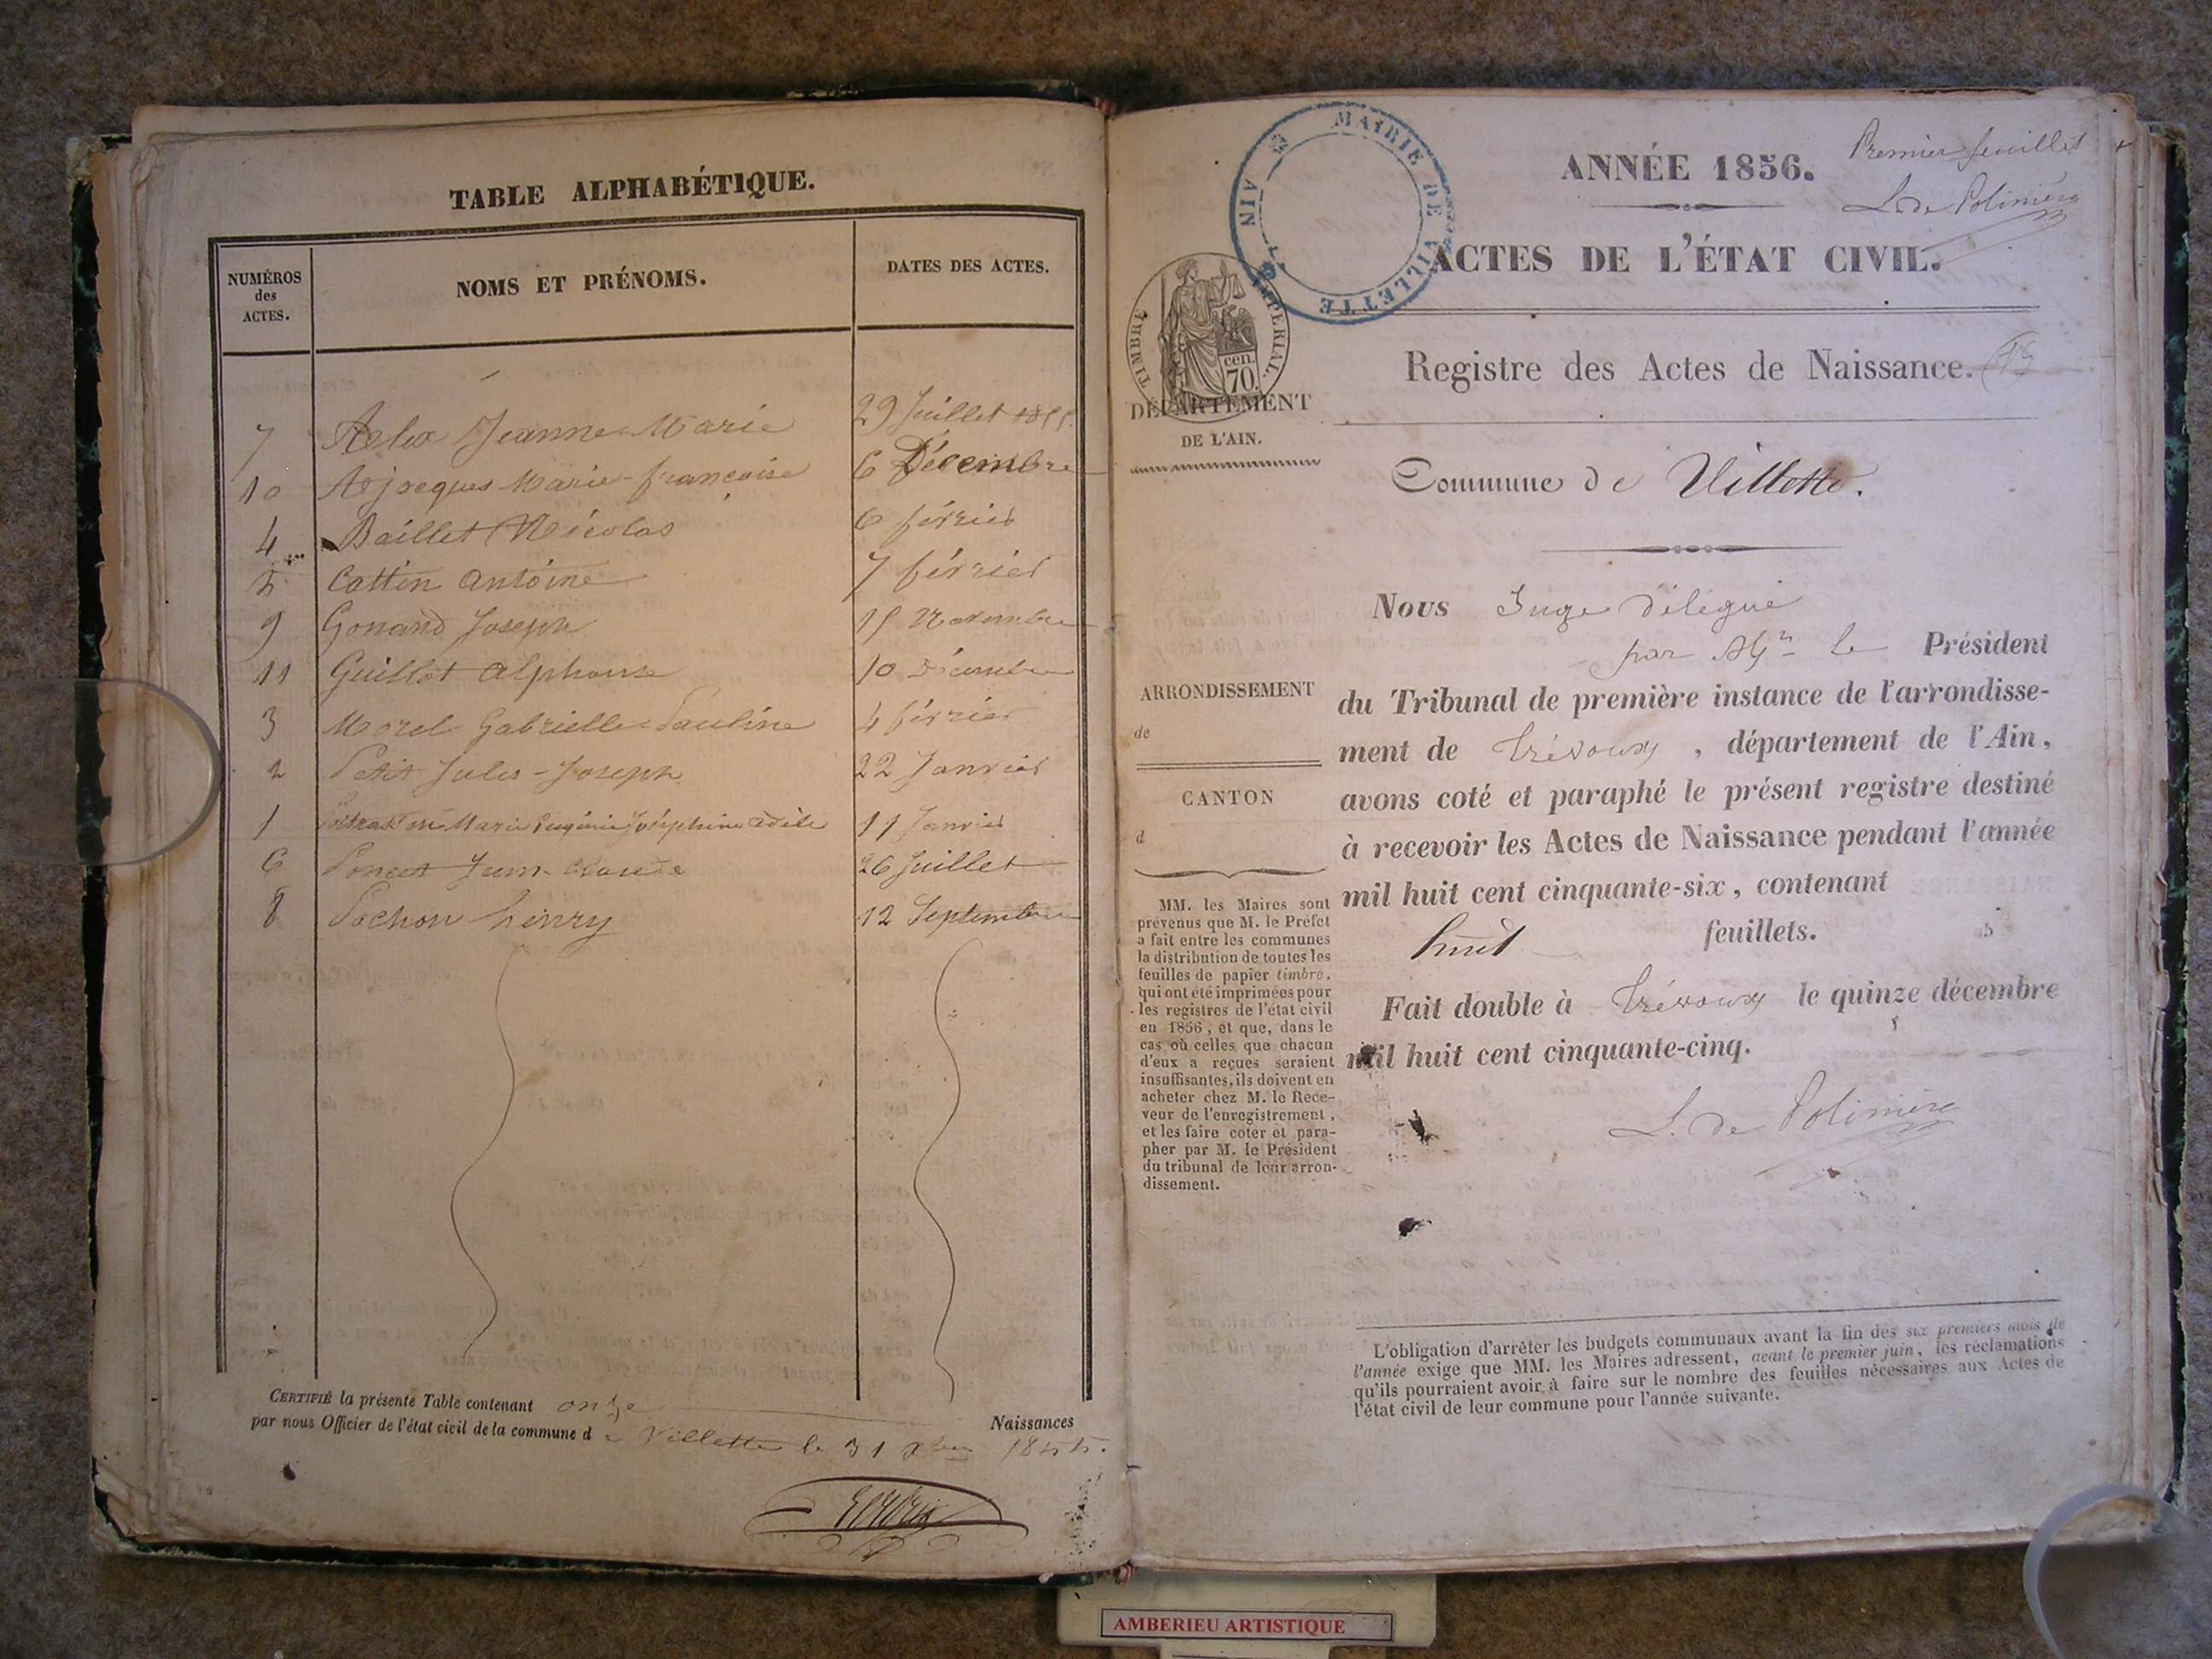 TABLE ALPHABÉTIQUE.
NUMÉROS
des
ACTES.
NOMS ET PRÉNOMS.
DATES DES ACTES.
7 Jeanne-Marie 29 Juillet 1855
10 Marie-françoise 6 Décembre
4 Baillet Nicolas 6 février
5 Cottin Antoine 7 février
9 Gonand Joseph 15 Novembre
11 Guillot Alphonse 10 Décembre
3 Morel Gabrielle-Pauline 4 février
2 Petit Jules-Joseph 22 Janvier
1 Marie Eugénie Joséphine Adèle 11 Janvier
6 Poncet Jean-Claude 26 Juillet
8 Pochon henry 12 Septembre
CERTIFIÉ la présente Table contenant onze
Naissances
par nous Officier de l'état civil de la commune de Villette le 31 Xbre 1855.
MAIRIE DE VILLETTE
AIN
TIMBRE IMPÉRIAL.
70 cen.
Premier feuillet
L. de Polinière
ANNÉE 1856.
ACTES DE L'ÉTAT CIVIL.
Registre des Actes de Naissance.
DÉPARTEMENT
DE L'AIN.
Commune de Villette.
Nous Juge délégué
par Mr le Président
du Tribunal de première instance de l'arrondisse-
ment de Trévoux, département de l'Ain,
avons coté et paraphé le présent registre destiné
à recevoir les Actes de Naissance pendant l'année
mil huit cent cinquante-six, contenant
huit feuillets.
Fait double à Trévoux le quinze décembre
mil huit cent cinquante-cinq.
L. de Polinière
ARRONDISSEMENT
de
CANTON
d
MM. les Maires sont
prévenus que M. le Préfet
a fait entre les communes
la distribution de toutes les
feuilles de papier timbré,
qui ont été imprimées pour
les registres de l'état civil
en 1856, et que, dans le
cas où celles que chacun
d'eux a reçues seraient
insuffisantes, ils doivent en
acheter chez M. le Rece-
veur de l'enregistrement,
et les faire coter et para-
pher par M. le Président
du tribunal de leur arron-
dissement.
L'obligation d'arrêter les budgets communaux avant la fin des six premiers mois de
l'année exige que MM. les Maires adressent, avant le premier juin, les réclamations
qu'ils pourraient avoir à faire sur le nombre des feuilles nécessaires aux Actes de
l'état civil de leur commune pour l'année suivante.
AMBERIEU ARTISTIQUE